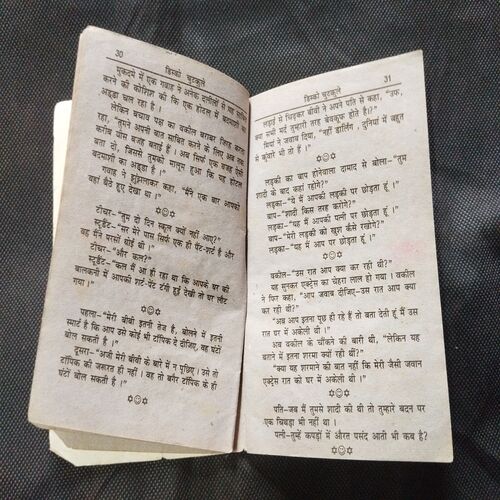 30
डिस्को चुटकुले
मुकदमे में एक गवाह ने अनेक दलीलों से यह साबित
करने की कोशिश की कि एक होटल में बदमाशों का
अड्डा चल रहा है।
लेकिन बचाव पक्ष का वकील बराबर जिरह करता
रहा, "तुमने अपनी बात साबित करने के लिए अब तक
करीब बीस वजह बताई हैं। अब सिर्फ एक वजह ऐसी
बता दो, जिससे तुमको मालूम हुआ कि यह होटल
बदमाशों का अड्डा है।"
गवाह ने झुंझलाकर कहा, "मैंने एक बार आपको
वहां बैठे हुए देखा था।"
टीचर–"तुम दो दिन स्कूल क्यों नहीं आए?"
स्टूडैंट–"सर मेरे पास सिर्फ एक ही पैंट-शर्ट है और
वह मैंने परसों धोई थी।"
टीचर–"और कल?"
स्टूडैंट–"कल मैं आ ही रहा था कि आपके घर की
बालकनी में आपकी शर्ट-पेंट टंगी हुई देखी तो घर लौट
गया।"
पहला–"मेरी बीवी इतनी तेज है, बोलने में इतनी
स्मार्ट है कि आप उसे कोई भी टॉपिक दे दीजिए, वह घंटों
बोल सकती है।"
दूसरा–"अजी मेरी बीवी के बारे में न पूछिए। उसे तो
टॉपिक की जरूरत ही नहीं। वह तो बगैर टॉपिक के ही
घंटों बोल सकती है।"
डिस्को चुटकुले
31
लड़ाई से चिढ़कर बीवी ने अपने पति से कहा, "उफ,
क्या सभी मर्द तुम्हारी तरह बेवकूफ होते हैं।"
मियां ने जवाब दिया, "नहीं डार्लिंग, दुनियां में बहुत
से कुंवारे भी तो हैं।"
लड़की का बाप होनेवाला दामाद से बोला–"तुम
शादी के बाद कहां रहोगे?"
लड़का–"ये मैं आपकी लड़की पर छोड़ता हूं।"
बाप–"शादी किस तरह करोगे?"
लड़का–"यह मैं आपकी पत्नी पर छोड़ता हूं।"
बाप–"मेरी लड़की को खुश कैसे रखोगे?"
लड़का–"यह मैं आप पर छोड़ता हूं।"
वकील–"उस रात आप क्या कर रही थी?"
यह सुनकर एक्ट्रेस का चेहरा लाल हो गया। वकील
ने फिर कहा, "आप जवाब दीजिए-उस रात आप क्या
कर रही थीं?"
"अब आप इतना पूछ ही रहे हैं तो बता देती हूं मैं उस
रात घर में अकेली थी।"
अब वकील के चौंकने की बारी थी, "लेकिन यह
बताने में इतना शरमा क्यों रही थीं?"
"क्या यह शरमाने की बात नहीं कि मेरी जैसी जवान
एक्ट्रेस रात को घर में अकेली थी।"
पति–जब मैं तुमसे शादी की थी तो तुम्हारे बदन पर
एक चिथड़ा भी नहीं था।
पत्नी–तुम्हें कपड़ों में औरत पसंद आती भी कब है?